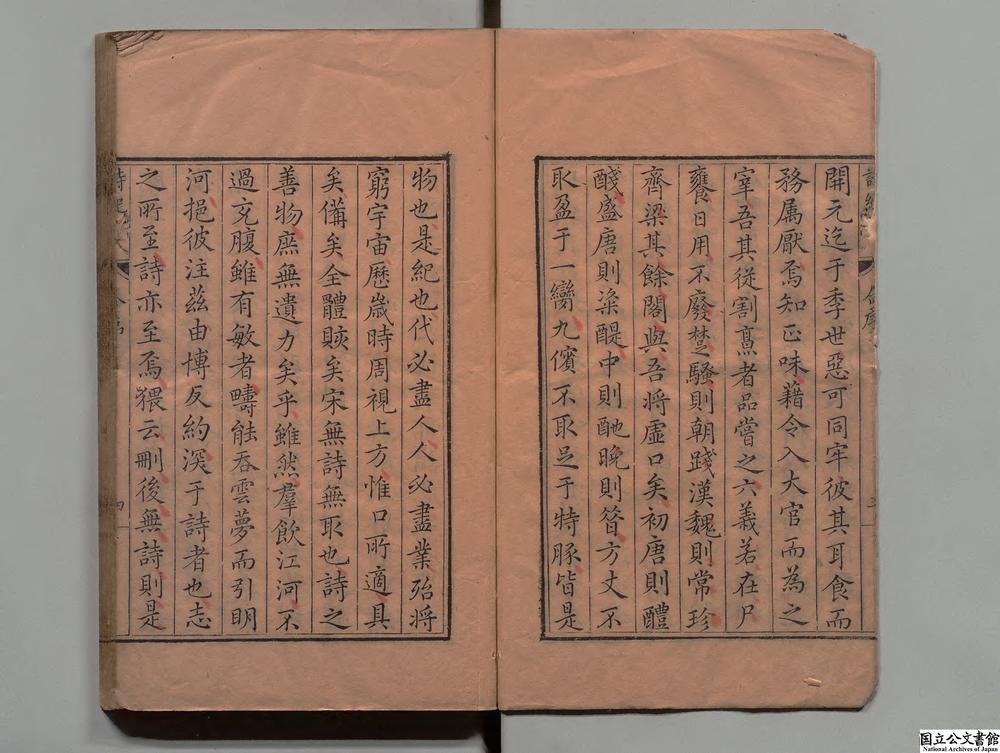 開元迄于季世惡可同牢彼其耳食而
務属厭焉知正味藉令入大官而為之
宰吾其從割亯者品嘗之六義若在尸
饔日用不廢楚騷則朝踐漢魏則常珍
齊梁其餘閣與吾將虛口矣初唐則醴
醆盛唐則粢醍中則酏晚則簎方丈不
取盈于一臠九儐不取足于特豚皆是
物也是紀也代必盡人人必盡業殆將
窮宇宙歷歲時周視上方惟口所適具
矣備矣全體賅矣宋無詩無取也詩之
善物庶無遺力矣乎雖然羣飲江河不
過充腹雖有敏者疇能吞雲夢而引明
河挹彼注茲由博反約深于詩者也志
之所至詩亦至焉猥云刪後無詩則是
四
国立公文書館
National Archives of Japan